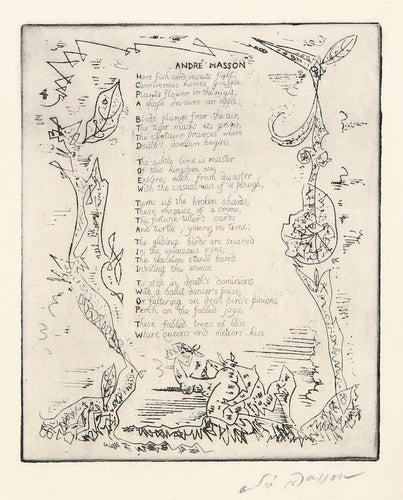 ANDRÉ MASSON
Here fish and insects fight,
Carnivorous horses grapple,
Plants flower in the night,
A shape devours an apple;
Birds plunge from the air,
The tiger masks its grin,
The centaur prances where
Death's domain begins.
The subtly line is master
Of this kingdom
Explores each fresh disaster
With the casualness of a plough,
Turns up the broken shards,
These mosaics of a crime,
The fortune-teller's cards
And turtle, young in time;
The gliding birds are snared
In the voracious eyes,
The skeleton stands bared
Inviting the unwise
To step in death's dominions
With a ballet-dancer's poise,
Or faltering on dead bird's pinions
Perch on the fabled joys,
These fabled trees of bliss
Where queens and meteors kiss.
andré Masson